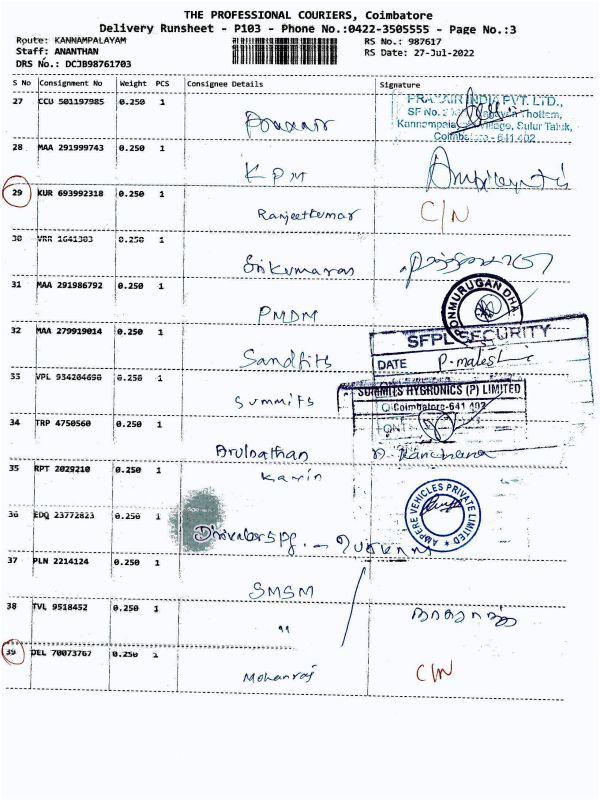 THE PROFESSIONAL COURIERS, Coimbatore
Delivery Runsheet - P103 - Phone No.:0422-3505555 - Page No.:3
Route: KANNAMPALAYAM RS No.: 987617
Staff: ANANTHAN RS Date: 27-Jul-2022
DRS No.: DCJB98761703
S No Consignment No Weight PCS Consignee Details Signature
27 CCU 501197985 0.250 1
PRAXAIR INDIA PVT. LTD.,
SF No. Thottem,
Kannampalayam Village, Sulur Taluk,
Coimbatore - 641 402
28 MAA 291999743 0.250 1
KPM
29 KUR 693992318 0.250 1
Ranjeetkumar C/N
30 VRR 1641303 0.250 1
Srikumaran
31 MAA 291986792 0.250 1
PMDM
PONMURUGAN DHA
32 MAA 279919014 0.250 1
Sandfits
SFPL SECURITY
DATE
33 VPL 934204690 0.250 1
Summits
SUMMITS HYGRONICS (P) LIMITED
Coimbatore-641 402
34 TRP 4750560 0.250 1
Arulnathan
35 RPT 2029210 0.250 1
Kavin
AMPERE VEHICLES PRIVATE LIMITED
36 EDQ 23772823 0.250 1
37 PLN 2214124 0.250 1
SMSM
38 TVL 9518452 0.250 1
"
39 DEL 70073767 0.250 1
Mohanraj C/N